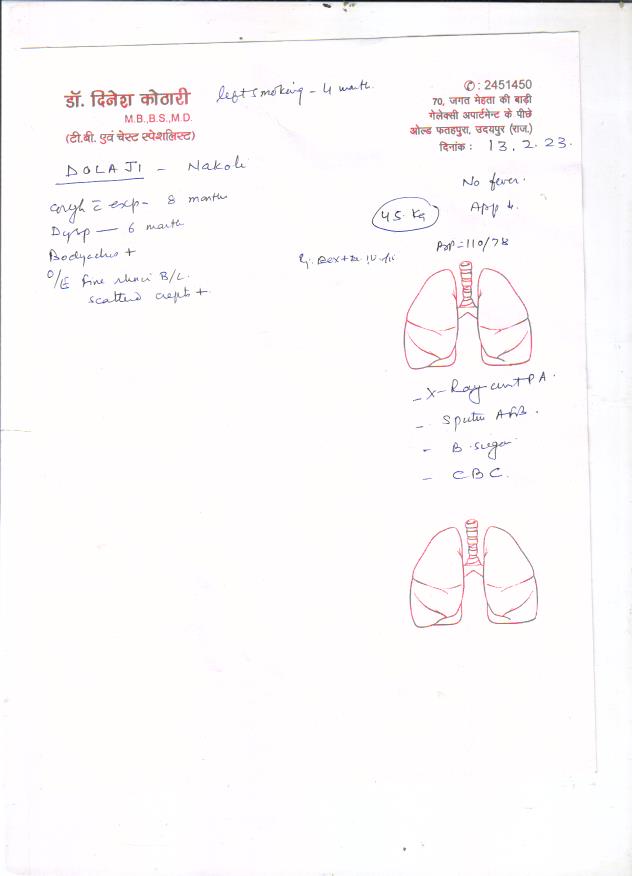 डॉ. दिनेश कोठारी
M.B.,B.S.,M.D.
(टी.बी. एवं चेस्ट स्पेशलिस्ट)
left smoking - 4 month.
✆ : 2451450
70, जगत मेहता की बाड़ी
गेलेक्सी अपार्टमेन्ट के पीछे
ओल्ड फतहपुरा, उदयपुर (राज.)
दिनांक : 13.2.23.
DOLAJI - Nakoli
cough c̄ exp - 8 months
Dysp — 6 month
Bodyaches +
O/E fine rhonci B/L
scattered crepts +
No fever.
App ↓.
45 Kg
BP = 110/78
- X-Ray chest PA.
- Sputum AFB.
- B. sugar
- CBC.